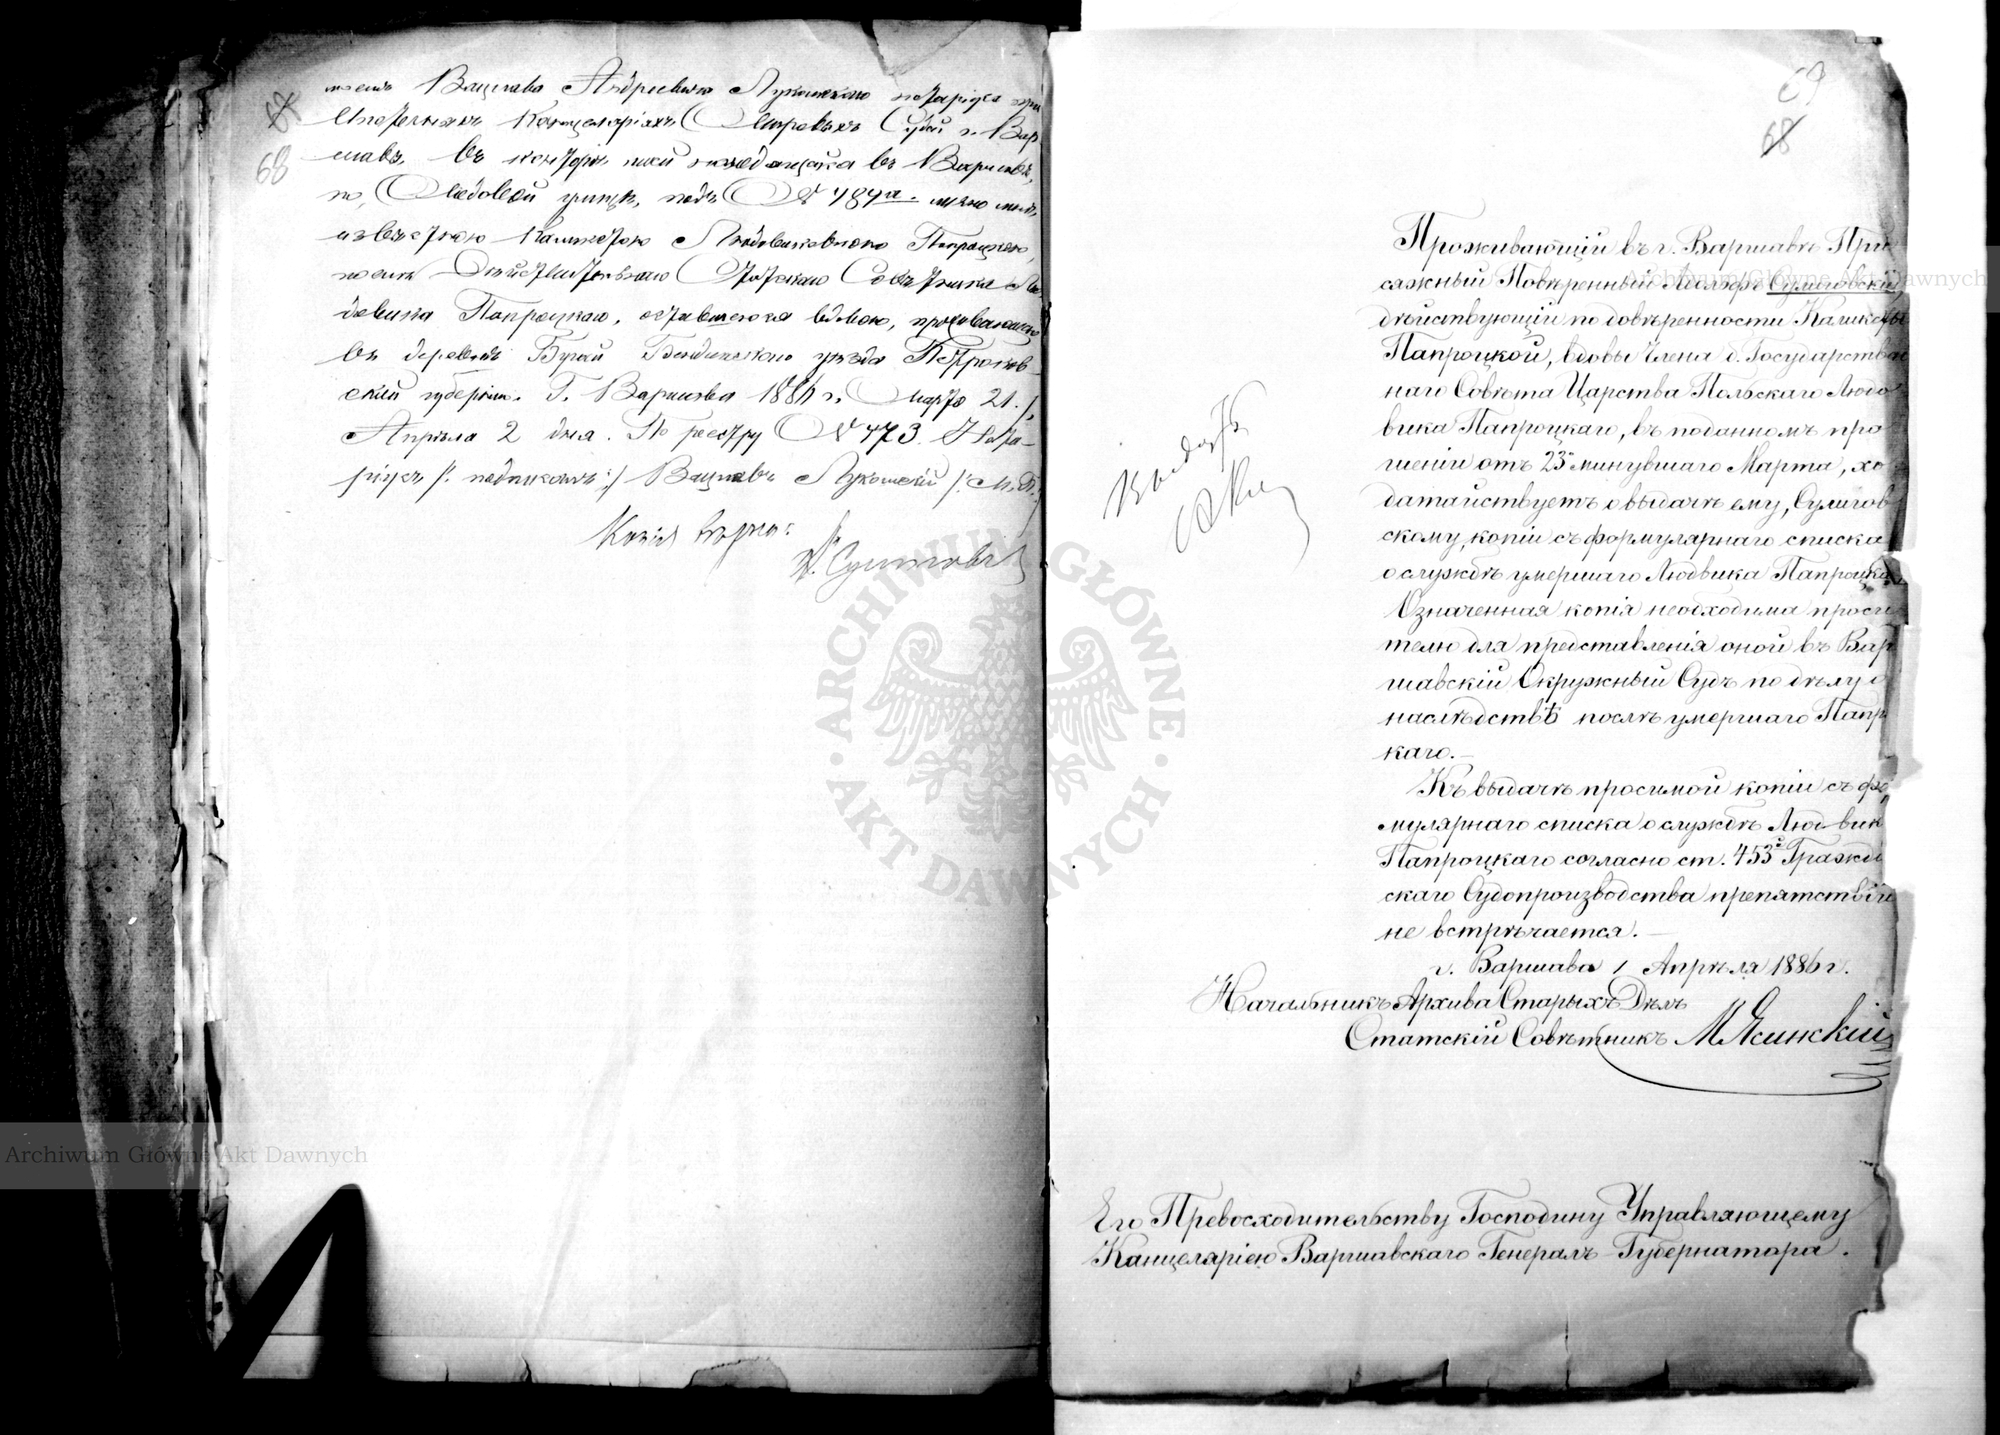 67
68
Вацлава Андреевича Лукомскаго нотаріуса при
Ипотечныхъ Канцеляріяхъ Мировыхъ Судей г. Вар
шавѣ, въ конторѣ моей находящейся въ Варшавѣ,
по Медовой улицѣ, подъ № 484а. лично мнѣ
извѣстною Каликстою Людвиковною Папроцкою,
послѣ Дѣйствительнаго Статскаго Совѣтника Лю
довика Папроцкаго, оставшеюся вдовою, проживающею
въ деревнѣ Бугай Бендинскаго уѣзда Петроков
ской губерніи. Г. Варшава 1886 г. Марта 21./
Апрѣля 2 дня. По реестру № 473. Нота-
ріусъ /: подписалъ :/ Вацлавъ Лукомскій /: М. П. :/
Копія вѣрна:
А. Сулиговскій
69
68
Проживающій въ г. Варшавѣ При
сяжный Повѣренный Адольфъ Сулиговскій,
дѣйствующій по довѣренности Каликсты
Папроцкой, вдовы Члена б. Государствен
наго Совѣта Царства Польскаго Людо
вика Папроцкаго, въ поданномъ про
шеніи отъ 23 минувшаго Марта, хо
датайствуетъ о выдачѣ ему, Сулигов
скому, копіи съ формулярнаго списка
о службѣ умершаго Людвика Папроцкаго.
Означенная копія необходима проси
телю для представленія оной въ Вар
шавскій Окружный Судъ по дѣлу о
наслѣдствѣ послѣ умершаго Папроц
каго.—
Къ выдачѣ просимой копіи съ фор
мулярнаго списка о службѣ Людвика
Папроцкаго согласно ст. 453й Граждан
скаго Судопроизводства препятствій
не встрѣчается.—
г. Варшава 1 Апрѣля 1886 г.
Начальникъ Архива Старыхъ Дѣлъ
Статскій Совѣтникъ М Ясинскій
Его Превосходительству Господину Управляющему
Канцеляріею Варшавскаго Генералъ-Губернатора.
Archiwum Główne Akt Dawnych
Archiwum Główne Akt Dawnych
ARCHIWUM GŁÓWNE · AKT DAWNYCH ·